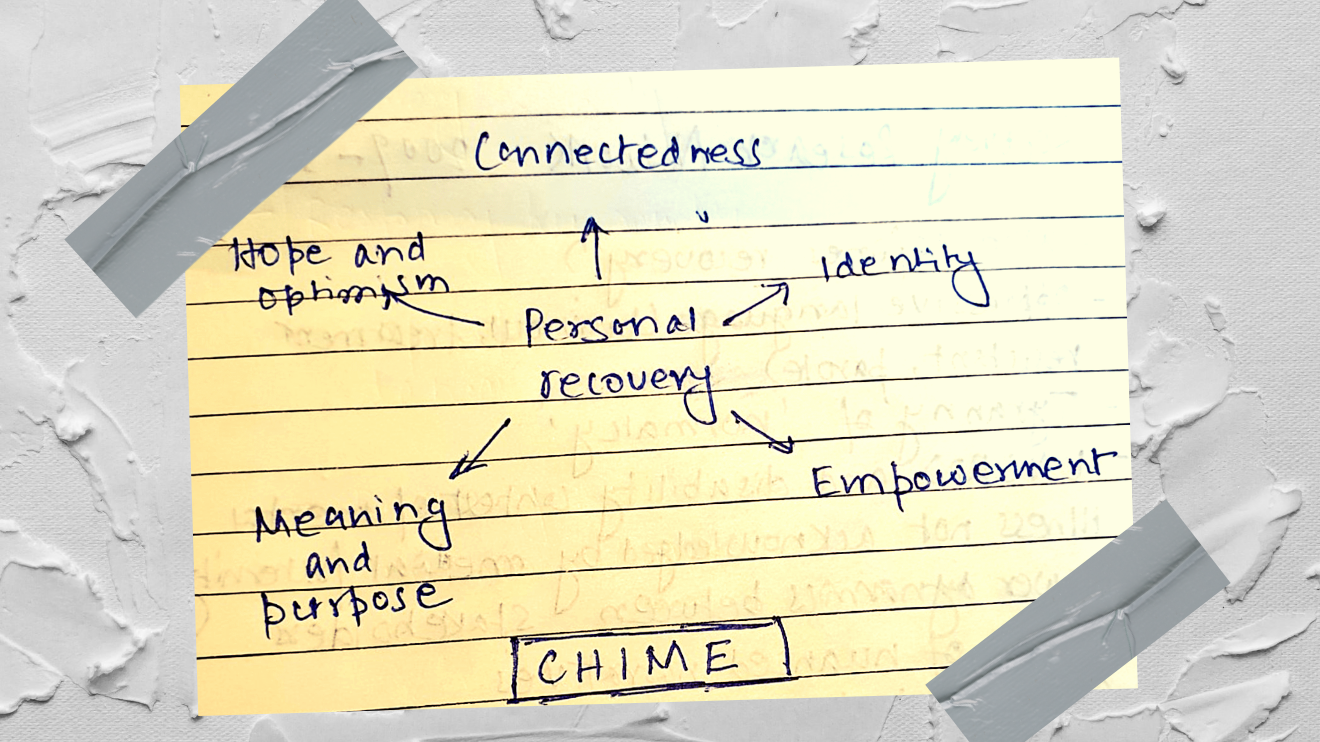 Connectedness
Hope and
optimism
Identity
Personal
recovery
Empowerment
Meaning
and
purpose
CHIME